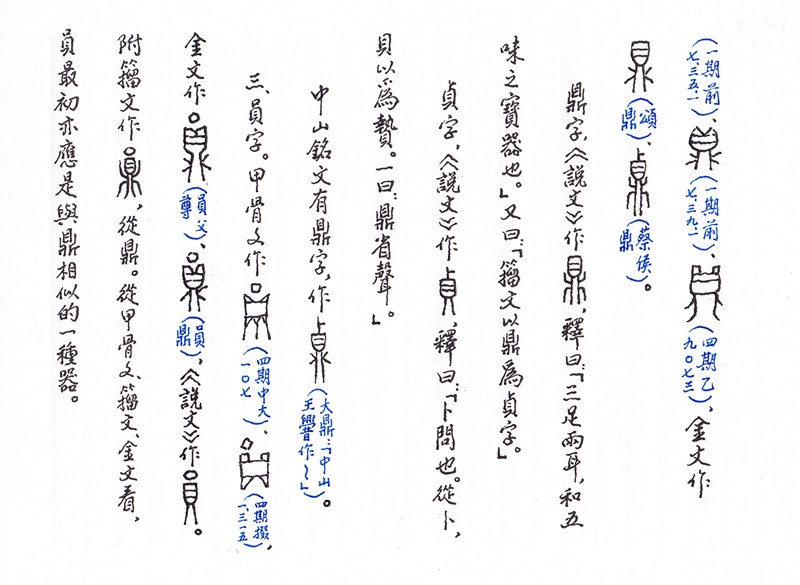 (一期前七、三五、一)、(一期前七、三九、一)、(四期乙九〇七三)、金文作
(頌鼎)、(蔡侯鼎)。
鼎字,《說文》作,釋曰:「三足兩耳,和五
味之寶器也。」又曰:「籀文以鼎爲貞字。」
貞字,《說文》作,釋曰:「卜問也。從卜,
貝以爲贄。一曰:鼎省聲。」
中山銘文有鼎字,作(大鼎:「中山王作~」)。
三、員字。甲骨文作(四期中大一〇七)、(四期掇一、三一五),
金文作(員父尊)、(員鼎),《說文》作。
附籀文作,從鼎。從甲骨文、籀文、金文看,
員最初亦應是與鼎相似的一種器。